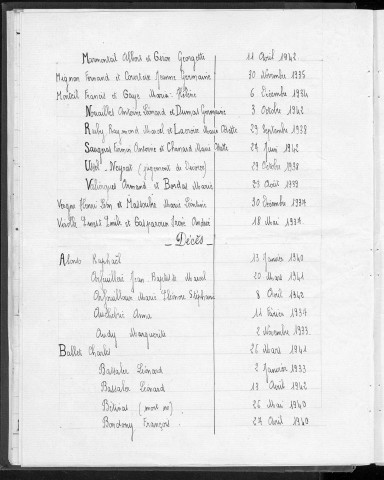 Marmontal Albert et Giron Georgette 11 Avril 1942
Mignon Fernand et Courteix Jeanne Germaine 30 Novembre 1935
Monteil Francis et Gaye Maria-Hélène 6 Décembre 1934
Nouailles Antoine Léonard et Dumas Germaine 3 Octobre 1942
Ruby Raymond Marcel et Lacroix Marie Odette 29 Septembre 1938
Saugeras Firmin Antoine et Chareud Marie Odette 27 Juin 1942
Ussel - Neyrat (jugement de divorce) 29 Octobre 1938
Valingues Armand et Bordas Marie Août 1939
Vergne Henri Léon et Massoubre Marie Léontine 30 Décembre 1937
Louis Emile et Gasparoux Irène Andrée 18 Mai 1937
- Décès -
Alonso Raphaël 13 Janvier 1940
Jean Baptiste Marcel 20 Mars 1941
Marie Léonore Stéphanie 8 Avril 1942
Anna 11 Février 1937
Audy Marguerite 2 Novembre 1933
Ballet Charles 26 Mars 1941
Bassaler Léonard 2 Janvier 1933
Bassaler Léonard 17 Avril 1942
Bétinas (mort né) 26 Mai 1940
Bordessoy François 27 Avril 1940